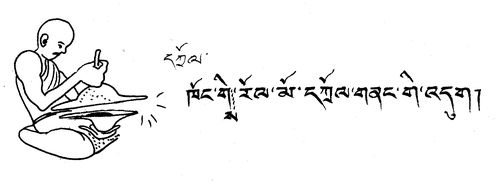 དཀྲོལ་
ཁོང་གིས་རོལ་མོ་དཀྲོལ་གནང་གི་འདུག།